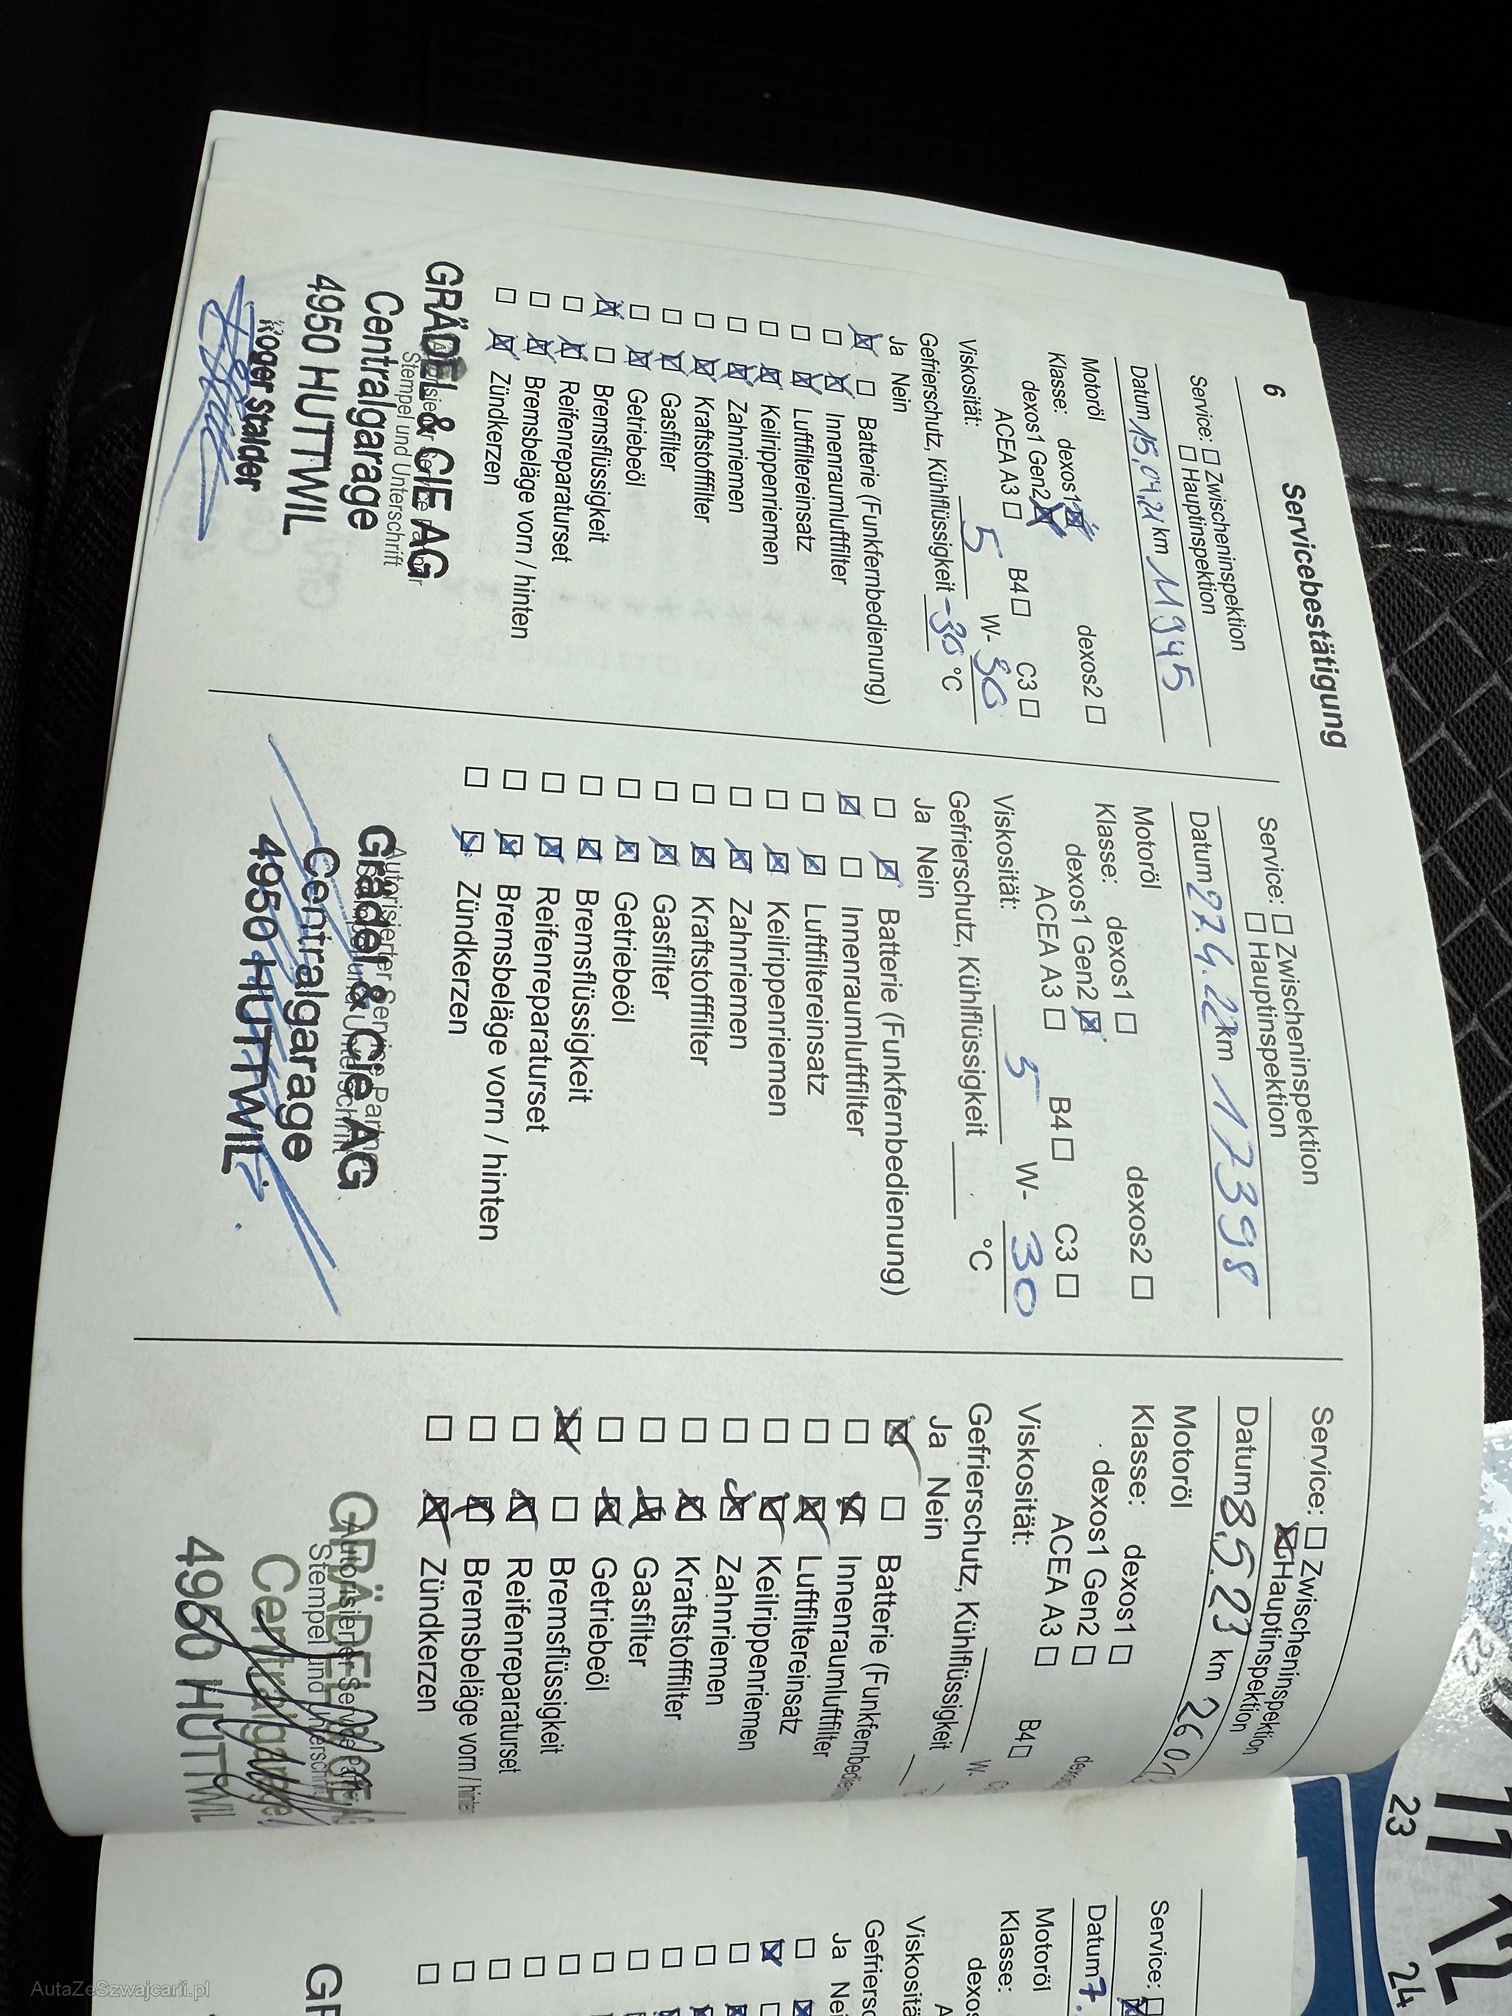 6 Servicebestätigung
Service: ☐ Zwischeninspektion
☐ Hauptinspektion
Datum 15.04.21 km 11945
Motoröl
Klasse: dexos1 ☒ dexos2 ☐
dexos1 Gen2 ☒
ACEA A3 ☐ B4 ☐ C3 ☐
Viskosität: 5 W- 30
Gefrierschutz, Kühlflüssigkeit -30 °C
Ja Nein
☒ ☐ Batterie (Funkfernbedienung)
☐ ☒ Innenraumluftfilter
☐ ☒ Luftfiltereinsatz
☐ ☒ Keilrippenriemen
☐ ☒ Zahnriemen
☐ ☒ Kraftstofffilter
☐ ☒ Gasfilter
☐ ☒ Getriebeöl
☒ ☐ Bremsflüssigkeit
☐ ☒ Reifenreparaturset
☐ ☒ Bremsbeläge vorn / hinten
☐ ☒ Zündkerzen
Stempel und Unterschrift
GRÄDEL & CIE AG
Centralgarage
4950 HUTTWIL
Roger Stalder
Service: ☐ Zwischeninspektion
☐ Hauptinspektion
Datum 27.4.22 km 17398
Motoröl
Klasse: dexos1 ☐ dexos2 ☐
dexos1 Gen2 ☒
ACEA A3 ☐ B4 ☐ C3 ☐
Viskosität: 5 W- 30
Gefrierschutz, Kühlflüssigkeit °C
Ja Nein
☐ ☒ Batterie (Funkfernbedienung)
☒ ☐ Innenraumluftfilter
☐ ☒ Luftfiltereinsatz
☐ ☒ Keilrippenriemen
☐ ☒ Zahnriemen
☐ ☒ Kraftstofffilter
☐ ☒ Gasfilter
☐ ☒ Getriebeöl
☐ ☒ Bremsflüssigkeit
☐ ☒ Reifenreparaturset
☐ ☒ Bremsbeläge vorn / hinten
☐ ☒ Zündkerzen
Autorisierter Service Partner
Grädel & Cie AG
Centralgarage
4950 HUTTWIL
Service: ☐ Zwischeninspektion
☒ Hauptinspektion
Datum 8.5.23 km
Motoröl
Klasse: dexos1 ☐
dexos1 Gen2 ☐
ACEA A3 ☐ B4 ☐
Viskosität: W-
Gefrierschutz, Kühlflüssigkeit
Ja Nein
☒ ☐ Batterie
☐ ☒ Innenraumluftfilter
☐ ☒ Luftfiltereinsatz
☐ ☒ Keilrippenriemen
☐ ☒ Zahnriemen
☐ ☒ Kraftstofffilter
☐ ☒ Gasfilter
☐ ☒ Getriebeöl
☒ ☐ Bremsflüssigkeit
☐ ☒ Reifenreparaturset
☐ ☒ Bremsbeläge vorn /
☐ ☒ Zündkerzen
Autorisierter Service Partner
Stempel und Unterschrift
GRÄDEL & CIE AG
Centralgarage
4950 HUTTWIL
Service:
Datum 7.
Motoröl
Klasse:
Ja
23
24
AutaZeSzwajcarii.pl